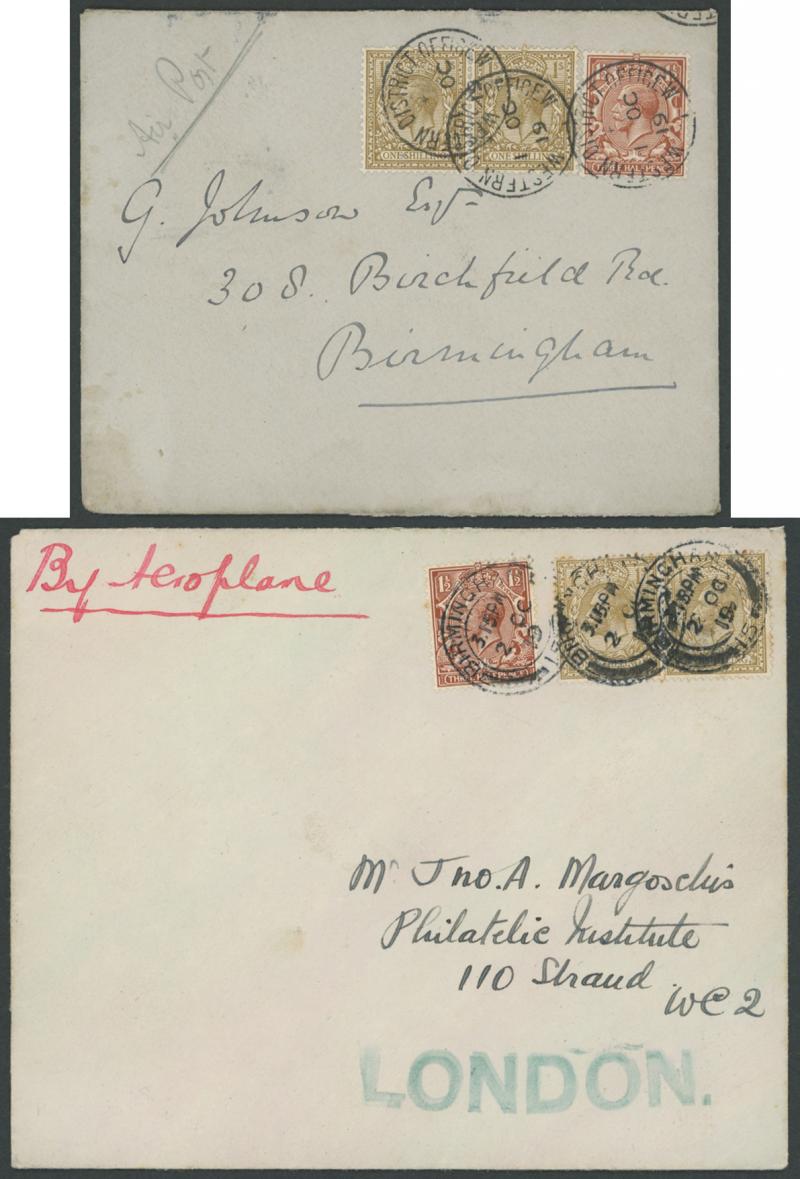 Air Post
WESTERN DISTRICT OFFICE W
OC
19
ONE SHILLING
G. Johnson Esq
308. Birchfield Rd.
Birmingham
By Aeroplane
1½ 1½
BIRMINGHAM
3.15 PM
2 OC
19
BIRMINGHAM
3.15 PM
2 OC
19
BIRMINGHAM
3.15 PM
2 OC
19
Mr Jno. A. Margoschis
Philatelic Institute
110 Strand
WC2
LONDON.